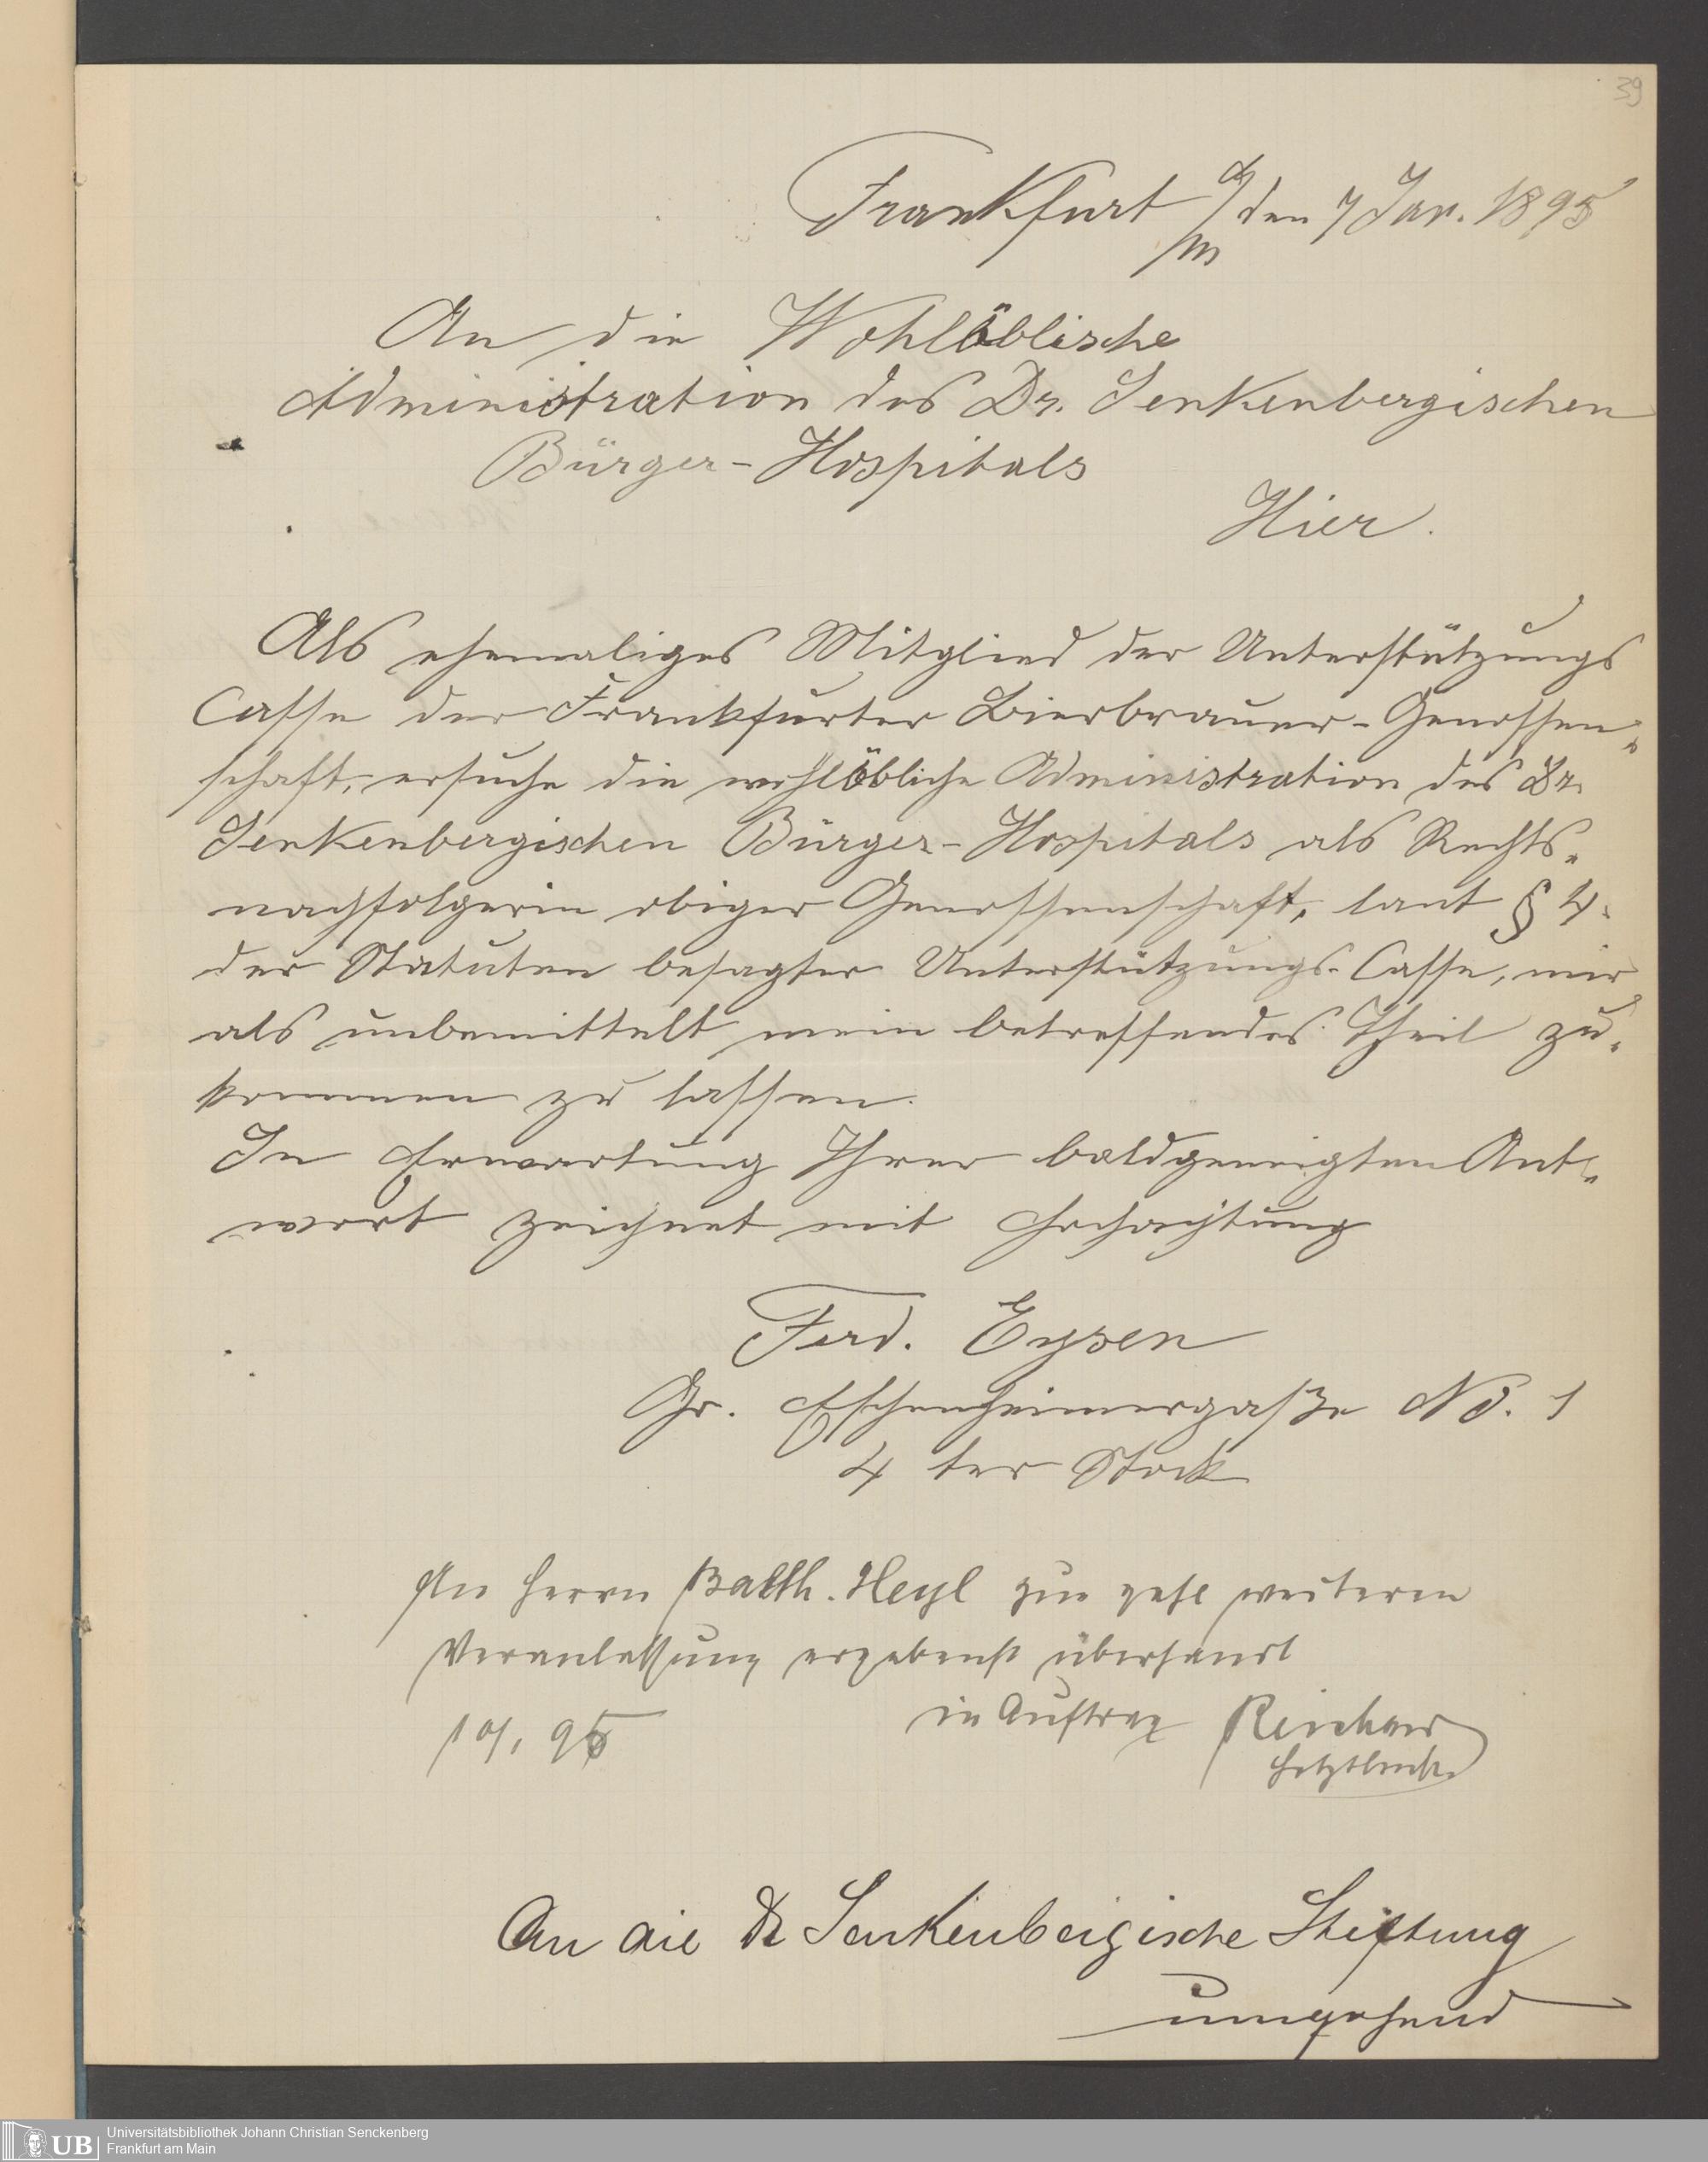 39
Frankfurt a/m den 7 Jan. 1895
An die Wohllöblische
Administration des Dr. Senkenbergischen
Bürger-Hospitals
Hier.
Als ehemaliges Mitglied der Unterstützungs
Casse der Frankfurter Bierbrauer-Genossen-
schaft, ersuche die wohllöbliche Administration des Dr.
Senkenbergischen Bürger-Hospitals als Rechts-
nachfolgerin obiger Genossenschaft, laut § 4.
der Statuten besagter Unterstützungs-Casse, mir
als unbemittelt mein betreffendes Theil zu-
kommen zu lassen.
In Erwartung Ihrer baldgeneigten Ant-
wort zeichnet mit Hochachtung
Ferd. Eysen
Gr. Eschenheimergaße No. 1
4 ter Stock
An Herrn Balth. Heyl zur gefl weiteren
Veranlassung ergebenst übersandt
95 in Auftrag
An die Dr Senkenbergische Stiftung
umgehend
UB Universitätsbibliothek Johann Christian Senckenberg
Frankfurt am Main